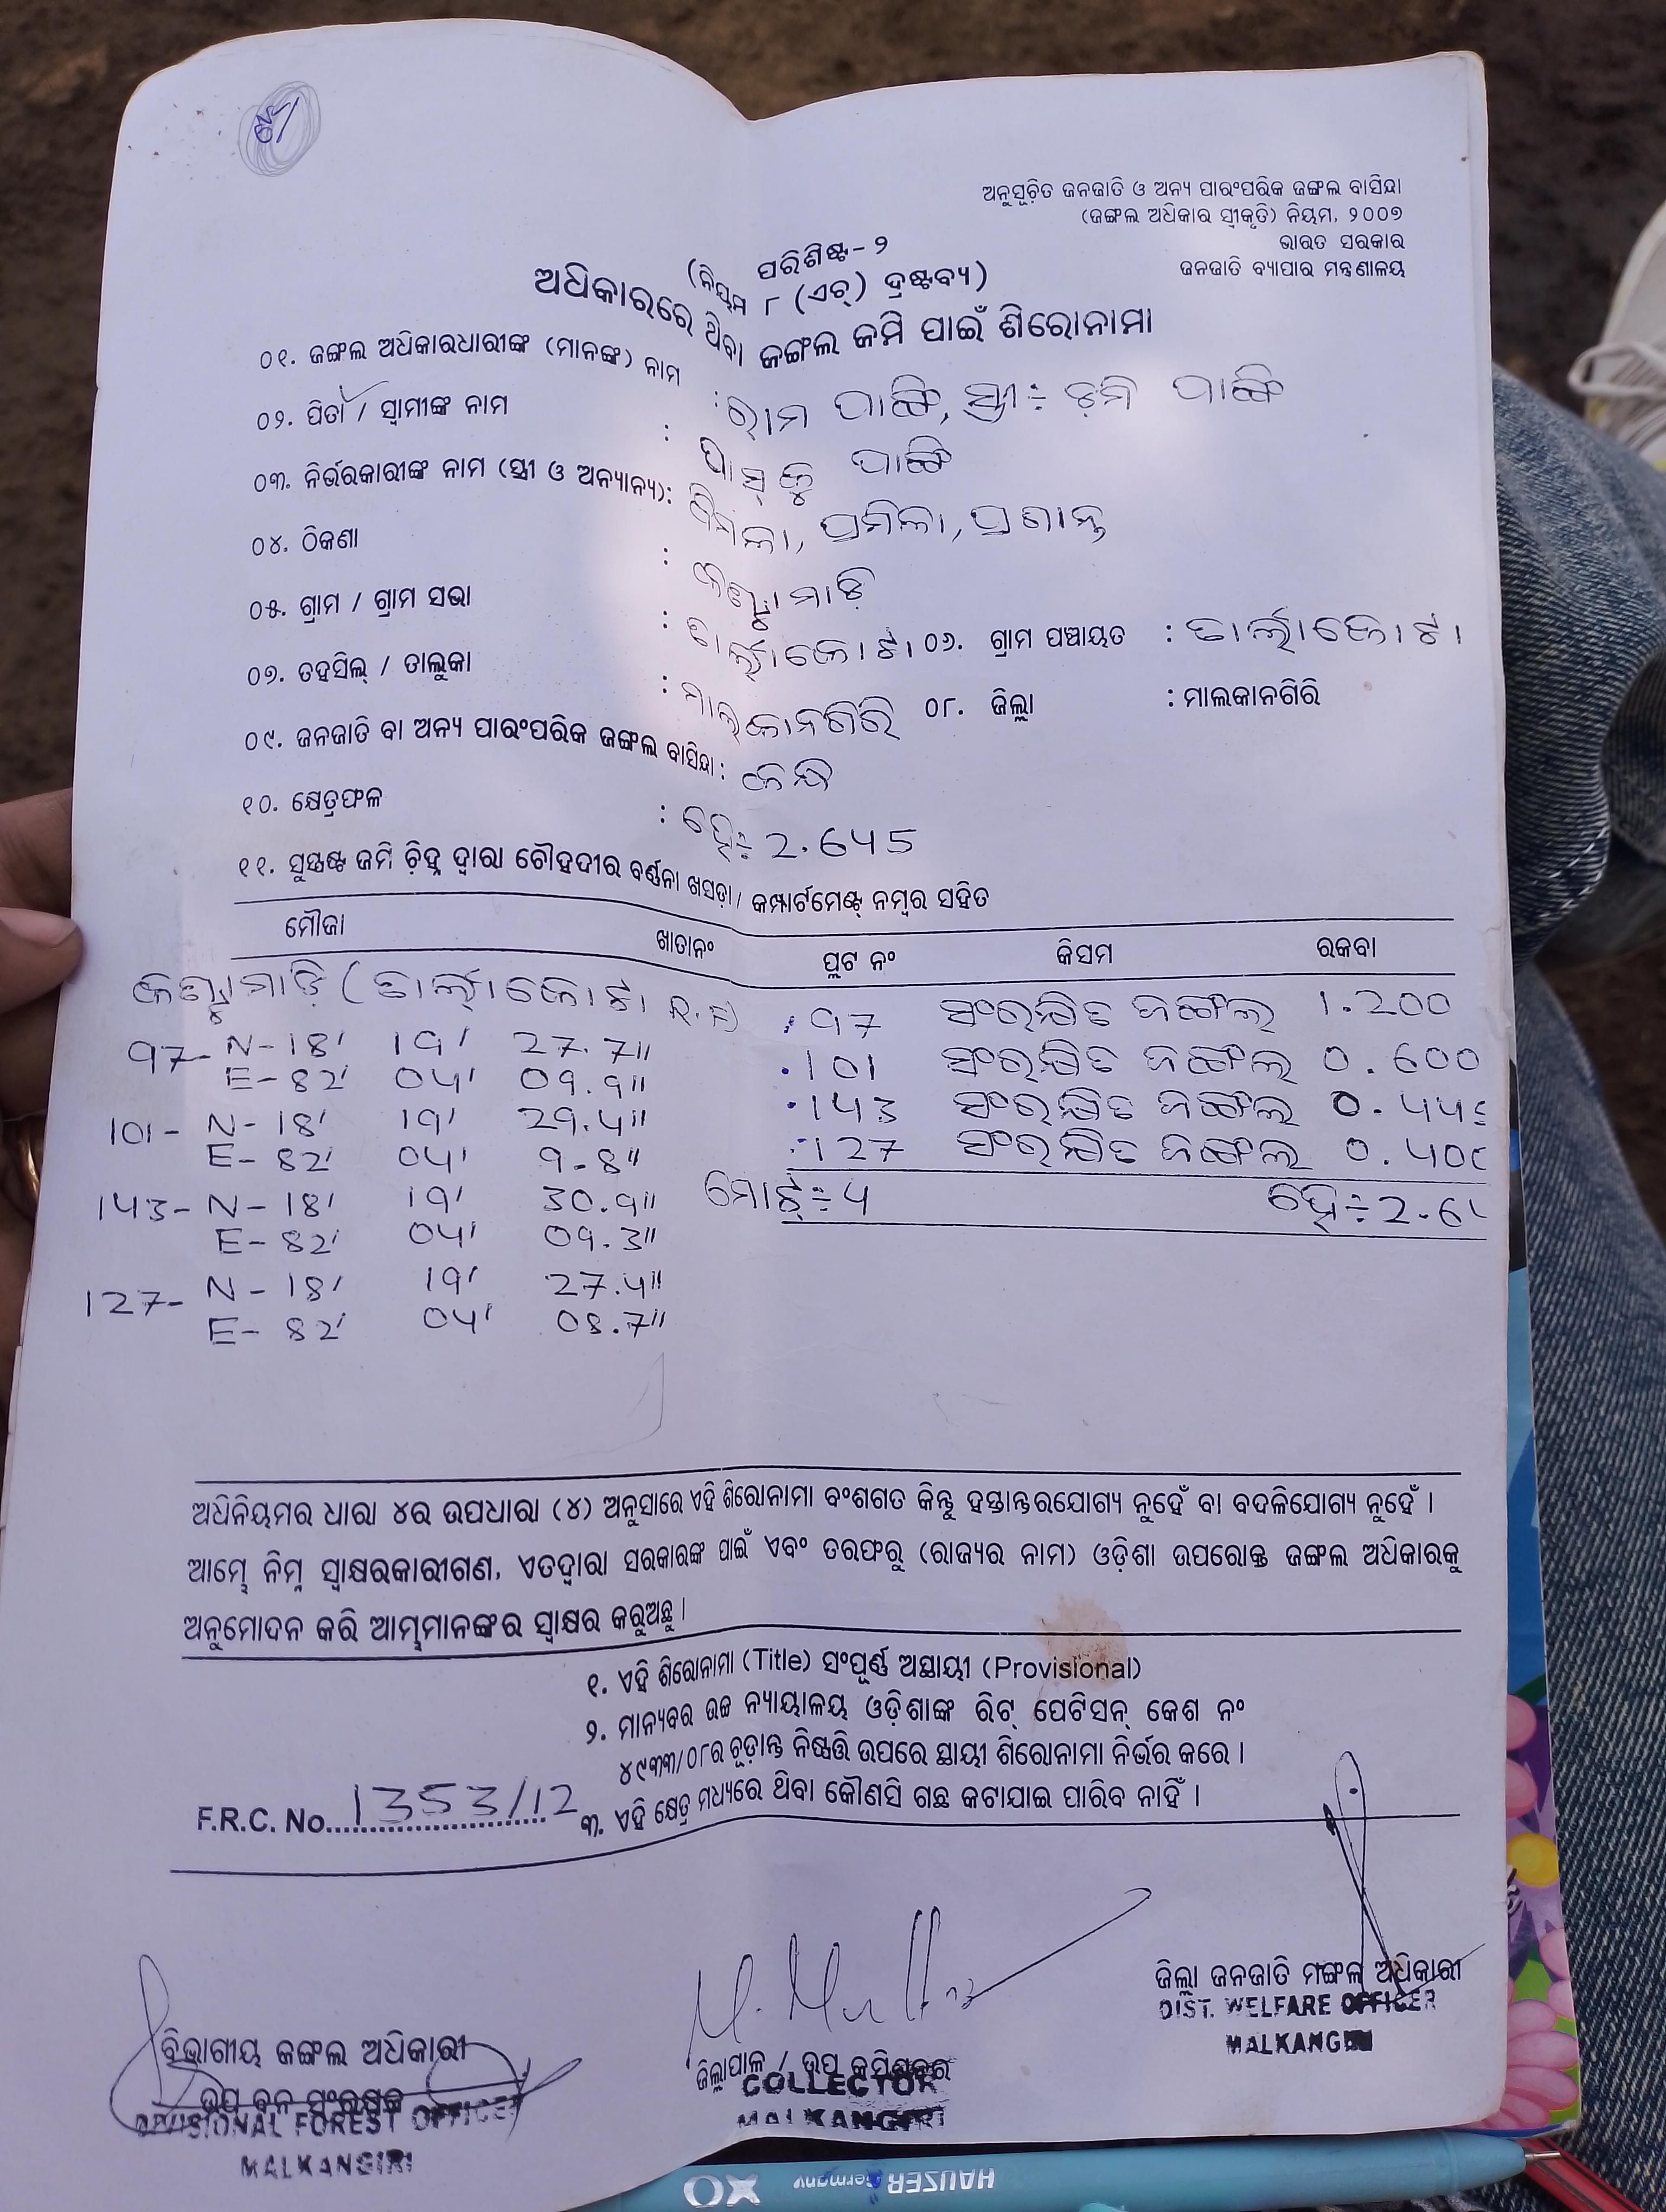 ଅନୁସୂଚିତ ଜନଜାତି ଓ ଅନ୍ୟ ପାରଂପରିକ ଜଙ୍ଗଲ ବାସିନ୍ଦା
(ଜଙ୍ଗଲ ଅଧିକାର ସ୍ୱୀକୃତି) ନିୟମ, ୨୦୦୭
ଭାରତ ସରକାର
ଜନଜାତି ବ୍ୟାପାର ମନ୍ତ୍ରଣାଳୟ
ପରିଶିଷ୍ଟ - ୨
(ନିୟମ ୮ (ଏଚ୍) ଦ୍ରଷ୍ଟବ୍ୟ)
ଅଧିକାରରେ ଥିବା ଜଙ୍ଗଲ ଜମି ପାଇଁ ଶିରୋନାମା
୦୧. ଜଙ୍ଗଲ ଅଧିକାରଧାରୀଙ୍କ (ମାନଙ୍କ) ନାମ : ରାମ ପାଙ୍ଗି, ସ୍ତ୍ରୀ÷ ଡ଼ମି ପାଙ୍ଗି
୦୨. ପିତା / ସ୍ୱାମୀଙ୍କ ନାମ : ପାଙ୍ଗି
୦୩. ନିର୍ଭରକାରୀଙ୍କ ନାମ (ସ୍ତ୍ରୀ ଓ ଅନ୍ୟାନ୍ୟ) : ବିମଳା, ପ୍ରମିଳା, ପ୍ରଶାନ୍ତ
୦୪. ଠିକଣା :
୦୫. ଗ୍ରାମ / ଗ୍ରାମ ସଭା : ତାର୍ଲାକୋଟା ୦୬. ଗ୍ରାମ ପଞ୍ଚାୟତ : ତାର୍ଲାକୋଟା
୦୭. ତହସିଲ୍ / ତାଲୁକା : ମାଲକାନଗିରି ୦୮. ଜିଲ୍ଲା : ମାଲକାନଗିରି
୦୯. ଜନଜାତି ବା ଅନ୍ୟ ପାରଂପରିକ ଜଙ୍ଗଲ ବାସିନ୍ଦା : କନ୍ଧ
୧୦. କ୍ଷେତ୍ରଫଳ : ହେ÷ 2.645
୧୧. ସୁସ୍ପଷ୍ଟ ଜମି ଚିହ୍ନ ଦ୍ୱାରା ଚୌହଦୀର ବର୍ଣ୍ଣନା ଖସଡ଼ା / କମ୍ପାର୍ଟମେଣ୍ଟ୍ ନମ୍ବର ସହିତ
ମୌଜା ଖାତାନଂ ପ୍ଲଟ ନଂ କିସମ ରକବା
(ତାର୍ଲାକୋଟା R.F) 97 ସଂରକ୍ଷିତ ଜଙ୍ଗଲ 1.200
97- N-18' 19' 27.7"
E-82' 04' 09.9" 101 ସଂରକ୍ଷିତ ଜଙ୍ଗଲ 0.600
101- N-18' 19' 29.4" 143 ସଂରକ୍ଷିତ ଜଙ୍ଗଲ 0.445
E-82' 04' 9-8" 127 ସଂରକ୍ଷିତ ଜଙ୍ଗଲ 0.400
143- N-18' 19' 30.9" ମୋଟ÷ 4 ହେ÷ 2.64
E-82' 04' 09.3"
127- N-18' 19' 27.4"
E-82' 04' 08.7"
ଅଧିନିୟମର ଧାରା ୪ର ଉପଧାରା (୪) ଅନୁସାରେ ଏହି ଶିରୋନାମା ବଂଶଗତ କିନ୍ତୁ ହସ୍ତାନ୍ତରଯୋଗ୍ୟ ନୁହେଁ ବା ବଦଳିଯୋଗ୍ୟ ନୁହେଁ ।
ଆମ୍ଭେ ନିମ୍ନ ସ୍ୱାକ୍ଷରକାରୀଗଣ, ଏତଦ୍ୱାରା ସରକାରଙ୍କ ପାଇଁ ଏବଂ ତରଫରୁ (ରାଜ୍ୟର ନାମ) ଓଡ଼ିଶା ଉପରୋକ୍ତ ଜଙ୍ଗଲ ଅଧିକାରକୁ
ଅନୁମୋଦନ କରି ଆମ୍ଭମାନଙ୍କର ସ୍ୱାକ୍ଷର କରୁଅଛୁ ।
୧. ଏହି ଶିରୋନାମା (Title) ସଂପୂର୍ଣ୍ଣ ଅସ୍ଥାୟୀ (Provisional)
୨. ମାନ୍ୟବର ଉଚ୍ଚ ନ୍ୟାୟାଳୟ ଓଡ଼ିଶାଙ୍କ ରିଟ୍ ପେଟିସନ୍ କେଶ ନଂ
୪୯୩୩/୦୮ର ଚୂଡ଼ାନ୍ତ ନିଷ୍ପତ୍ତି ଉପରେ ସ୍ଥାୟୀ ଶିରୋନାମା ନିର୍ଭର କରେ ।
F.R.C. No. 1353/12 ୩. ଏହି କ୍ଷେତ୍ର ମଧ୍ୟରେ ଥିବା କୌଣସି ଗଛ କଟାଯାଇ ପାରିବ ନାହିଁ ।
ଜିଲ୍ଲା ଜନଜାତି ମଙ୍ଗଳ ଅଧିକାରୀ
DIST. WELFARE OFFICER
MALKANGIRI
ବିଭାଗୀୟ ଜଙ୍ଗଲ ଅଧିକାରୀ
ଉପ ବନ ସଂରକ୍ଷକ
DIVISIONAL FOREST OFFICER
MALKANGIRI
ଜିଲ୍ଲାପାଳ / ଉପ କମିଶନର
COLLECTOR
MALKANGIRI
HAUSER Germany XO